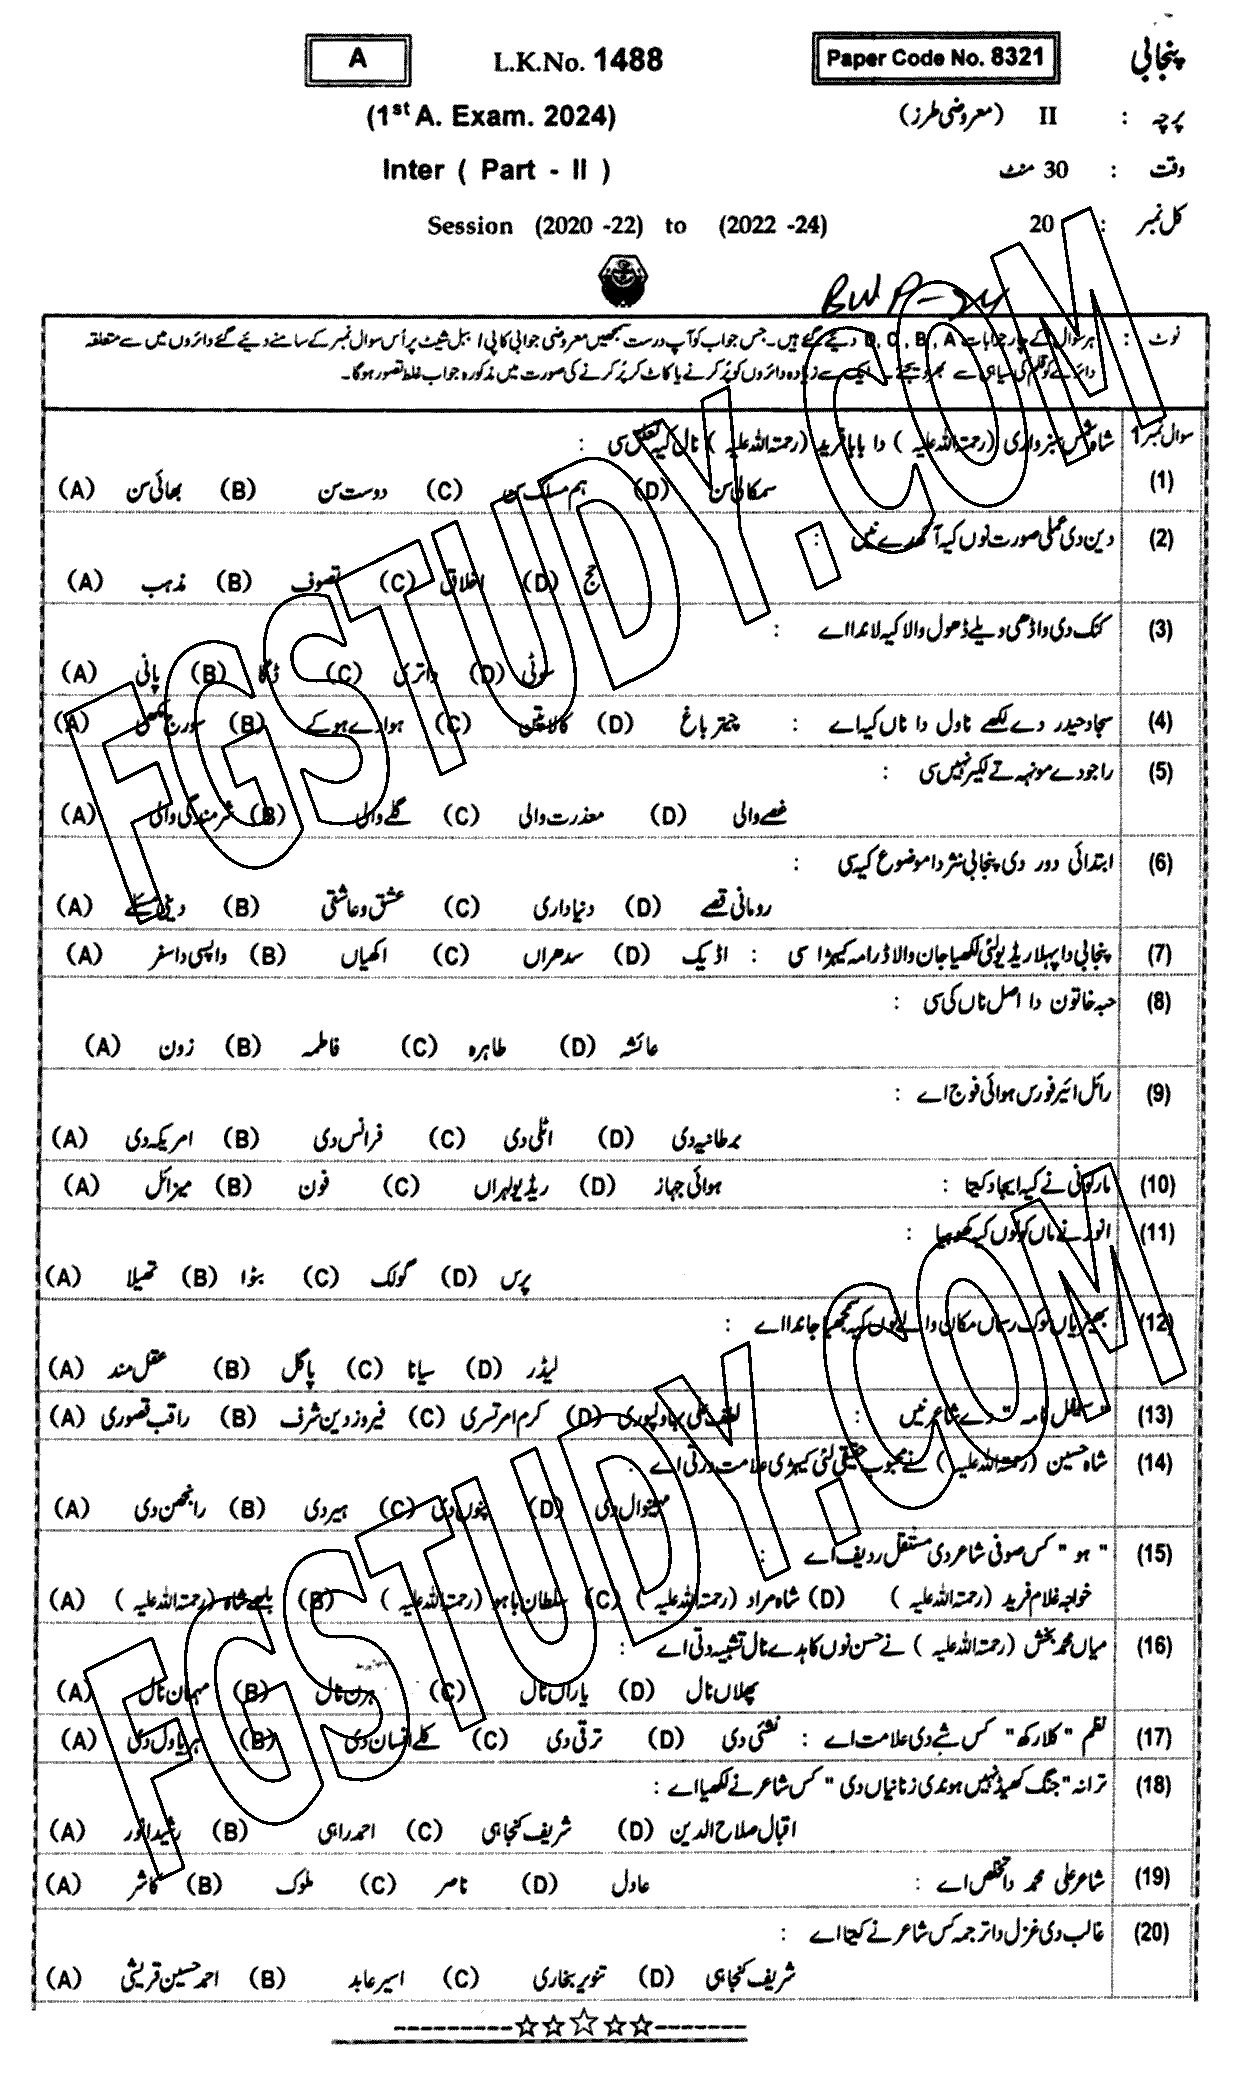 پنجابی Paper Code No. 8321 L.K.No. 1488 A
پرچہ : II (معروضی طرز) (1st A. Exam. 2024)
وقت : 30 منٹ Inter ( Part - II )
کل نمبر : 20 Session (2020 -22) to (2022 -24)
نوٹ : ہر سوال کے چار جوابات A ، B ، C ، D دیئے گئے ہیں۔ جس جواب کو آپ درست سمجھیں معروضی جوابی کاپی / ببل شیٹ پر اُس سوال نمبر کے سامنے دیئے گئے دائروں میں سے متعلقہ
دائرے کو قلم کی سیاہی سے بھر دیجئے۔ ایک سے زیادہ دائروں کو پُر کرنے یا کاٹ کر پُر کرنے کی صورت میں مذکورہ جواب غلط تصور ہوگا۔
سوال نمبر 1
(1) شاہ شمس سبزواری (رحمتہ اللہ علیہ) دا بابا فرید (رحمتہ اللہ علیہ) نال کیہ تعلق سی :
(A) بھائی سن (B) دوست سن (C) ہم مسلک سن (D) سمکالی سن
(2) دین دی عملی صورت نوں کیہ آکھدے نیں :
(A) مذہب (B) تصوف (C) اخلاق (D) حج
(3) کنک دی واڈھی ویلے ڈھول والا کیہ لاندا اے :
(A) پانی (B) ڈگا (C) داتری (D) سوٹی
(4) سجاد حیدر دے لکھے ناول دا ناں کیہ اے : (A) سورج مکھی (B) ہوا دے ہوکے (C) کالا پتن (D) چیتر باغ
(5) راجو دے مونہہ تے لکیر نہیں سی :
(A) شرمندگی والی (B) گلے والی (C) معذرت والی (D) غصے والی
(6) ابتدائی دور دی پنجابی نثر دا موضوع کیہ سی :
(A) دینی مسئلے (B) عشق و عاشقی (C) دنیاداری (D) رومانی قصے
(7) پنجابی دا پہلا ریڈیو لئی لکھیا جان والا ڈرامہ کیہڑا سی : (A) واپسی دا سفر (B) اکھیاں (C) سدھراں (D) اڈیک
(8) حبہ خاتون دا اصل ناں کی سی :
(A) زون (B) فاطمہ (C) طاہرہ (D) عائشہ
(9) رائل ائیر فورس ہوائی فوج اے :
(A) امریکہ دی (B) فرانس دی (C) اٹلی دی (D) برطانیہ دی
(10) مارکونی نے کیہ ایجاد کیتا : (A) میزائل (B) فون (C) ریڈیو لہراں (D) ہوائی جہاز
(11) انور نے ماں کولوں کیہ کھوہیا :
(A) تھیلا (B) بٹوا (C) گولک (D) پرس
(12) بھیڑیاں لوک رساں مکان والے نوں کیہ سمجھیا جاندا اے :
(A) عقل مند (B) پاگل (C) سیانا (D) لیڈر
(13) دے شاعر نیں : (A) راقب قصوری (B) فیروز دین شرف (C) کرم امرتسری (D) لطف علی بہاولپوری
(14) شاہ حسین (رحمتہ اللہ علیہ) نے محبوب حقیقی لئی کیہڑی علامت ورتی اے :
(A) رانجھن دی (B) ہیر دی (C) پنوں دی (D) مہینوال دی
(15) " ہو " کس صوفی شاعر دی مستقل ردیف اے :
(A) بلھے شاہ (رحمتہ اللہ علیہ) (B) سلطان باہو (رحمتہ اللہ علیہ) (C) شاہ مراد (رحمتہ اللہ علیہ) (D) خواجہ غلام فرید (رحمتہ اللہ علیہ)
(16) میاں محمد بخش (رحمتہ اللہ علیہ) نے حسن نوں کاہدے نال تشبیہ دتی اے :
(A) مہمان نال (B) ہرن نال (C) یاراں نال (D) پھلاں نال
(17) نظم " کلا رکھ " کس شے دی علامت اے : (A) ہریاول دی (B) کلے انسان دی (C) ترقی دی (D) نشئی دی
(18) ترانہ " جنگ کھیڈ نہیں ہوندی زنانیاں دی " کس شاعر نے لکھیا اے :
(A) رشید انور (B) احمد راہی (C) شریف کنجاہی (D) اقبال صلاح الدین
(19) شاعر علی محمد دا تخلص اے : (A) کاشر (B) ملوک (C) ناصر (D) عادل
(20) غالب دی غزل دا ترجمہ کس شاعر نے کیتا اے :
(A) احمد حسین قریشی (B) اسیر عابد (C) تنویر بخاری (D) شریف کنجاہی
FGSTUDY.COM
FGSTUDY.COM